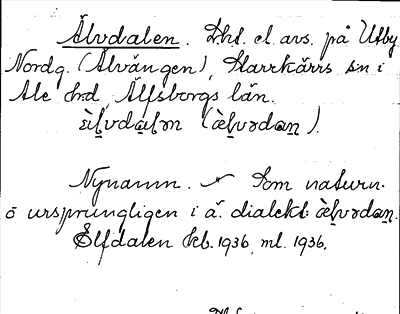 Älvdalen. Lht. el. avs. på Utby
Nordg. (Älvängen), Starrkärrs sn i
Ale hd, Älfsborgs län.
Nynamn. Som naturn.
ō ursprungligen i ä. dialekt
Elfdalen Kb. 1936, ml. 1936.